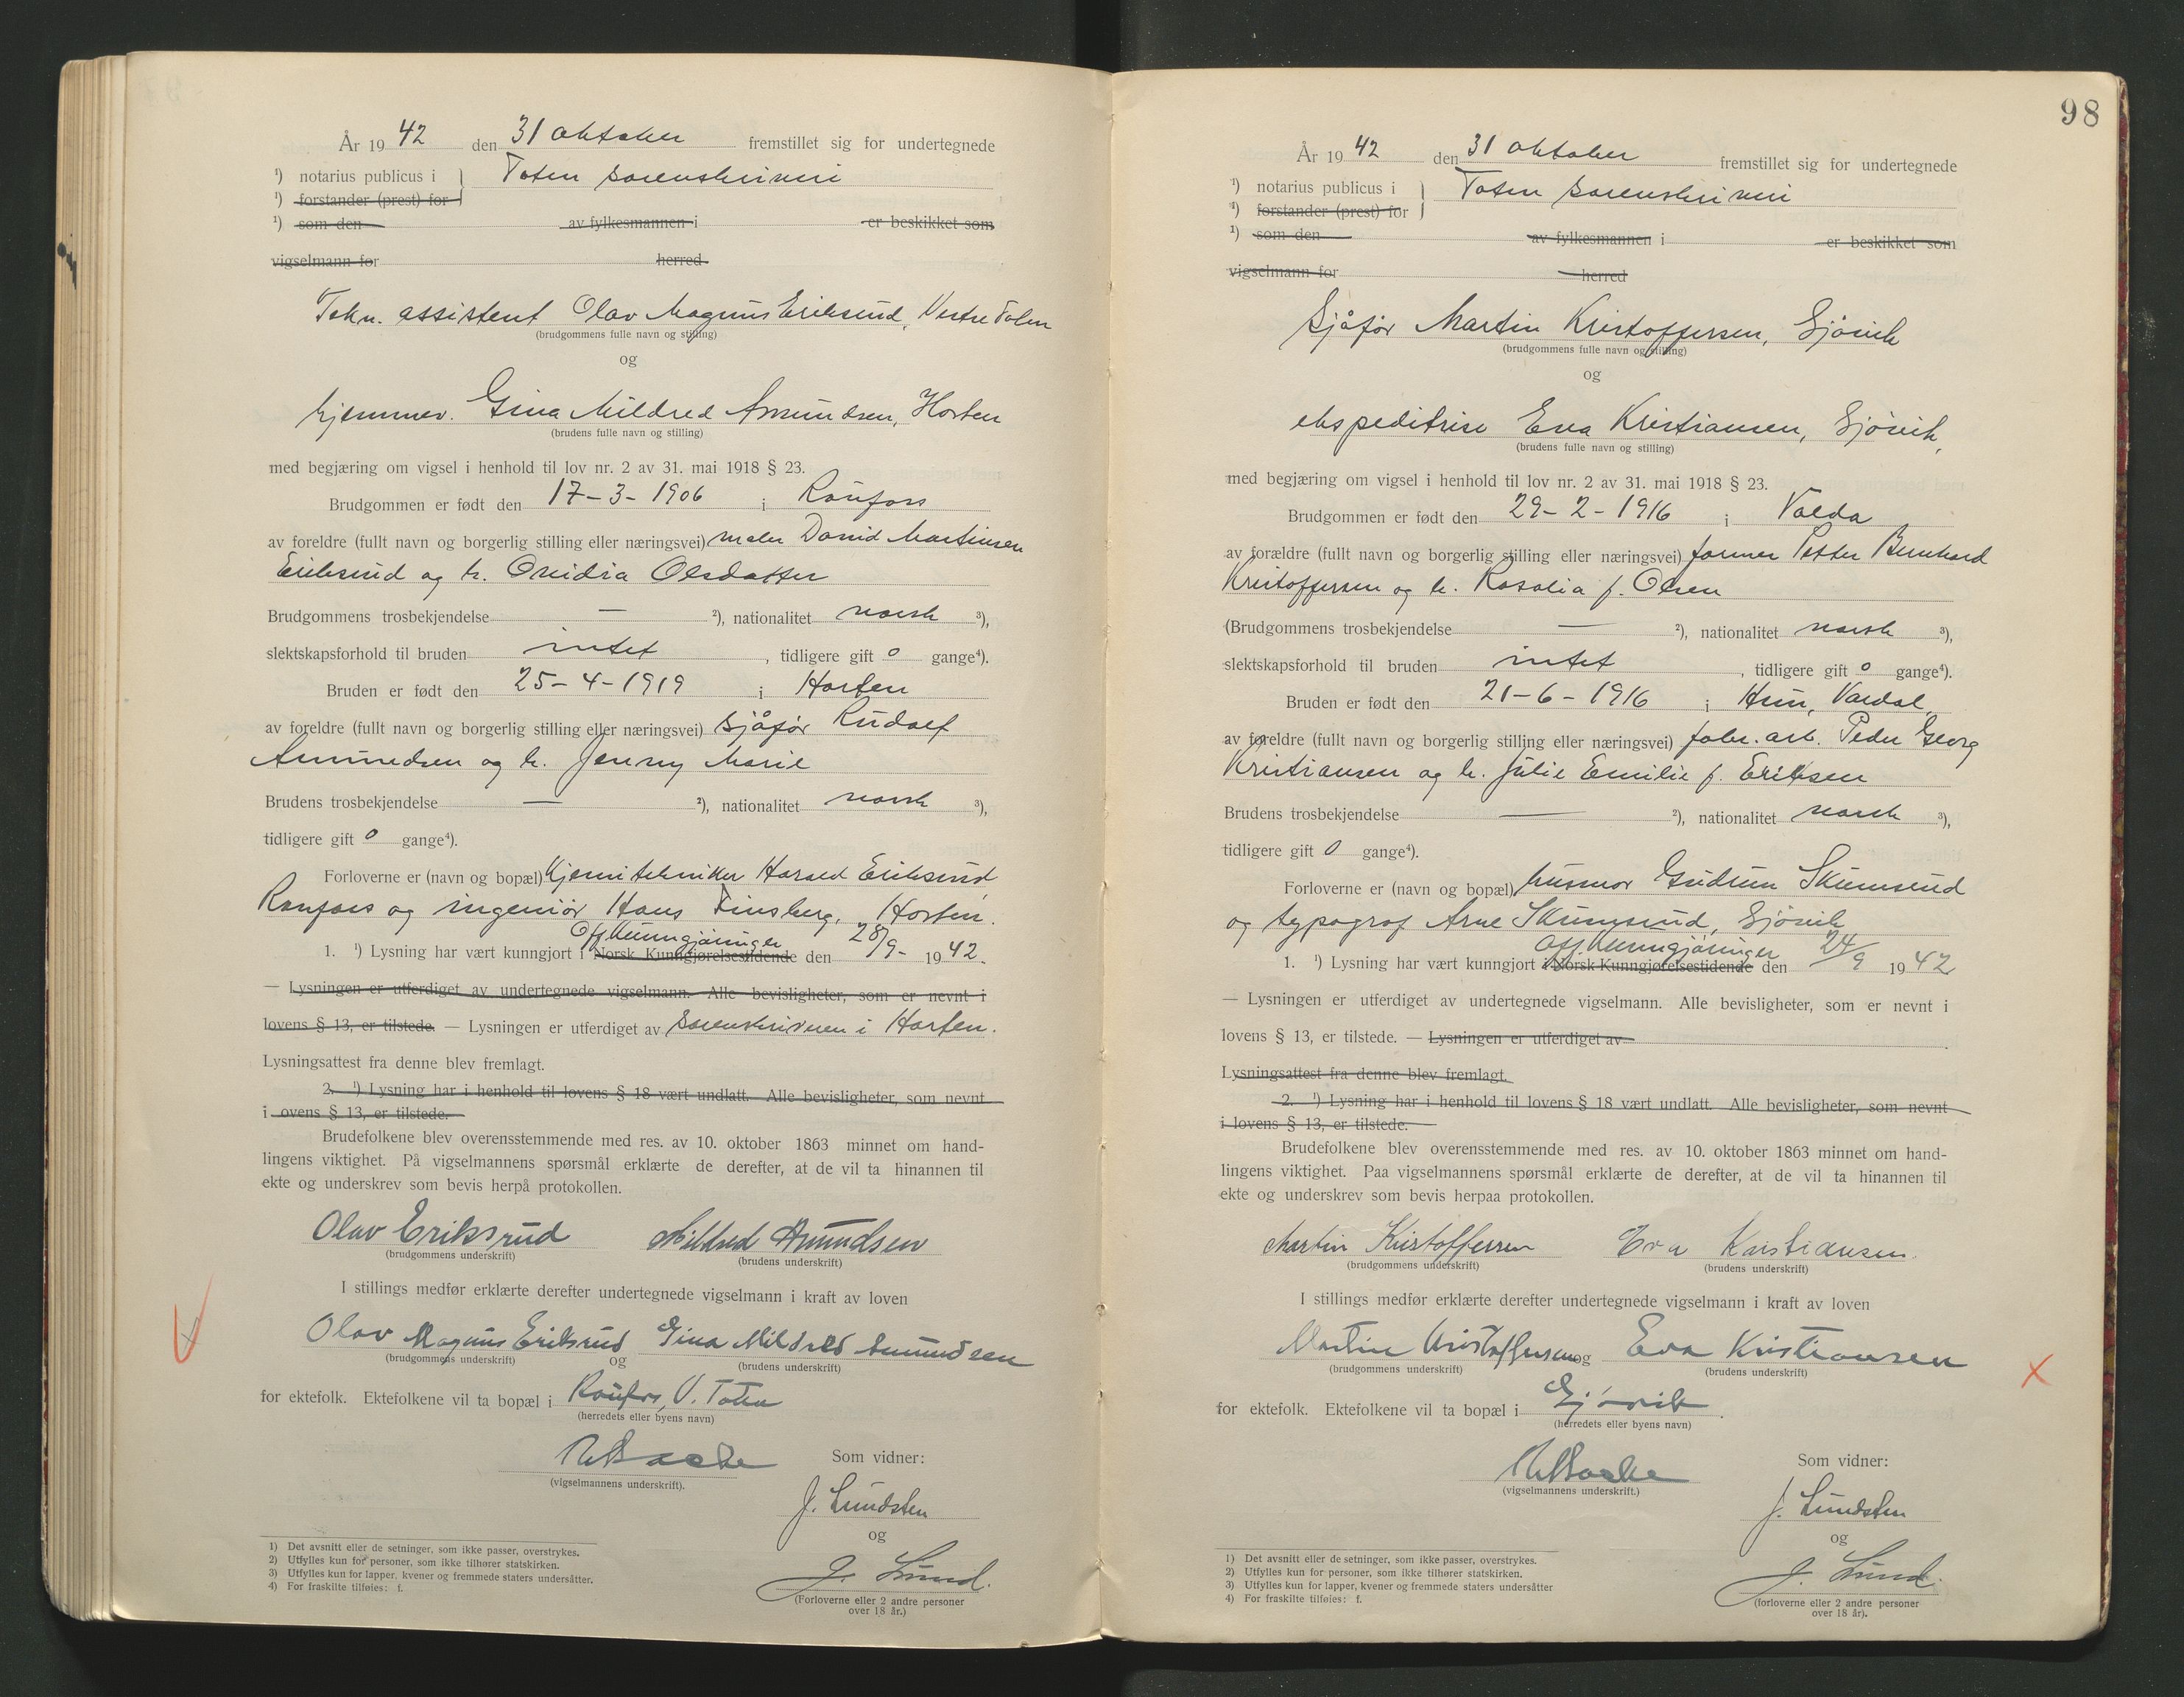 År 1942 den 31 oktober fremstillet sig for undertegnede
¹) notarius publicus i } Toten sorenskriveri
¹) forstander (prest) for
¹) som den av fylkesmannen i er beskikket som
vigselmann for herred.
Tekn. assistent Olav Magnus Eriksrud, Vestre Toten
(brudgommens fulle navn og stilling)
og
hjemmev. Gina Mildred Amundsen, Horten
(brudens fulle navn og stilling)
med begjæring om vigsel i henhold til lov nr. 2 av 31. mai 1918 § 23.
Brudgommen er født den 17-3-1906 i Raufoss
av foreldre (fullt navn og borgerlig stilling eller næringsvei) maler David Martinsen
Eriksrud og h. Ovidia Olsdatter
Brudgommens trosbekjendelse — ²), nationalitet norsk ³),
slektskapsforhold til bruden intet, tidligere gift 0 gange⁴).
Bruden er født den 25-4-1919 i Horten
av foreldre (fullt navn og borgerlig stilling eller næringsvei) sjåfør Rudolf
Amundsen og h. Jenny Marie
Brudens trosbekjendelse — ²), nationalitet norsk ³),
tidligere gift 0 gange⁴).
Forloverne er (navn og bopæl) Kjemitekniker Harald Eriksrud
Raufoss og ingeniør Hans Finsberg, Horten.
Off. Kunngjøringer
1. ¹) Lysning har vært kunngjort i Norsk Kunngjørelsestidende den 28/9- 1942.
— Lysningen er utferdiget av undertegnede vigselmann. Alle bevisligheter, som er nevnt i
lovens § 13, er tilstede. — Lysningen er utferdiget av sorenskriveren i Horten.
Lysningsattest fra denne blev fremlagt.
2. ¹) Lysning har i henhold til lovens § 18 vært undlatt. Alle bevisligheter, som nevnt
i ovens § 13, er tilstede.
Brudefolkene blev overensstemmende med res. av 10. oktober 1863 minnet om hand-
lingens viktighet. På vigselmannens spørsmål erklærte de derefter, at de vil ta hinannen til
ekte og underskrev som bevis herpå protokollen.
Olav Eriksrud Mildred Amundsen
(brudgommens underskrift) (brudens underskrift)
I stillings medfør erklærte derefter undertegnede vigselmann i kraft av loven
Olav Magnus Eriksrud og Gina Mildred Amundsen
(brudgommens underskrift) (brudens underskrift)
for ektefolk. Ektefolkene vil ta bopæl i Raufoss, V. Toten
(herredets eller byens navn)
(vigselmannens underskrift).
Som vidner:
J. Lundsten
og
J. Lund.
(Forloverne eller 2 andre personer
over 18 år.)
1) Det avsnitt eller de setninger, som ikke passer, overstrykes.
2) Utfylles kun for personer, som ikke tilhører statskirken.
3) Utfylles kun for lapper, kvener og fremmede staters undersåtter.
4) For fraskilte tilføies: f.
98
År 1942 den 31 oktober fremstillet sig for undertegnede
¹) notarius publicus i } Toten sorenskriveri
¹) forstander (prest) for
¹) som den av fylkesmannen i er beskikket som
vigselmann for herred
Sjåfør Martin Kristoffersen, Gjövik
(brudgommens fulle navn og stilling)
og
ekspeditrise Eva Kristiansen, Gjövik,
(brudens fulle navn og stilling)
med begjæring om vigsel i henhold til lov nr. 2 av 31. mai 1918 § 23.
Brudgommen er født den 29-2-1916 i Volda
av forældre (fullt navn og borgerlig stilling eller næringsvei) former Petter Bernhard
Kristoffersen og h. Rosalia f. Olsen
(Brudgommens trosbekjendelse — ²), nationalitet norsk ³),
slektskapsforhold til bruden intet, tidligere gift 0 gange⁴).
Bruden er født den 21-6-1916 i Hun, Vardal,
av foreldre (fullt navn og borgerlig stilling eller næringsvei) fabr. arb. Peder Georg
Kristiansen og h. Julie Emilie f. Eriksen
Brudens trosbekjendelse — ²), nationalitet norsk ³),
tidligere gift 0 gange⁴).
Forloverne er (navn og bopæl) husmor Gudrun Skumsrud
og typograf Arne Skumsrud, Gjövik
Off. Kunngjøringer
1. ¹) Lysning har vært kunngjort i Norsk Kunngjørelsestidende den 24/9 1942
— Lysningen er utferdiget av undertegnede vigselmann. Alle bevisligheter, som er nevnt i
lovens § 13, er tilstede. — Lysningen er utferdiget av
Lysningsattest fra denne blev fremlagt.
2. ¹) Lysning har i henhold til lovens § 18 vært undlatt. Alle bevisligheter, som nevnt
i lovens § 13, er tilstede.
Brudefolkene blev overensstemmende med res. av 10. oktober 1863 minnet om hand-
lingens viktighet. Paa vigselmannens spørsmål erklærte de derefter, at de vil ta hinannen til
ekte og underskrev som bevis herpaa protokollen.
Martin Kristoffersen Eva Kristiansen.
(brudgommens underskrift) (brudens underskrift)
I stillings medfør erklærte derefter undertegnede vigselmann i kraft av loven
Martin Kristoffersen og Eva Kristiansen
(brudgommens underskrift) (brudens underskrift)
for ektefolk. Ektefolkene vil ta bopæl i Gjövik.
(herredets eller byens navn)
(vigselmannens underskrift.)
Som vidner:
J. Lundsten
og
J. Lund.
(forloverne eller 2 andre personer
over 18 år).
1) Det avsnitt eller de setninger, som ikke passer, overstrykes.
2) Utfylles kun for personer, som ikke tilhører statskirken.
3) Utfylles kun for lapper, kvener og fremmede staters undersåtter
4) For fraskilte tilføies: f.